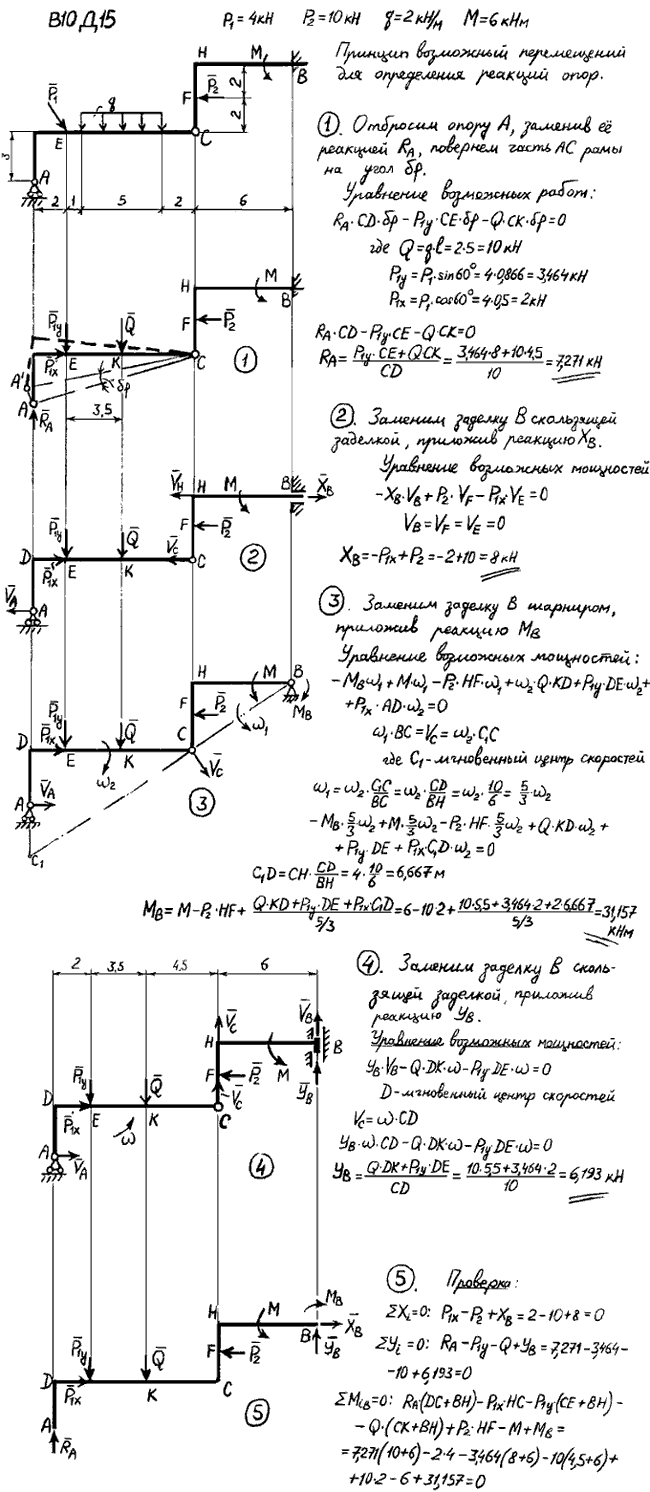 В10 Д15 P₁=4кН P₂=10кН q=2кН/м M=6кНм
Принцип возможный перемещений
для определения реакций опор.
H M B
P̄₁ q F P̄₂ 2
E C 2
3 A
2 1 5 2 6
① . Отбросим опору А, заменив её
реакцией R_A, повернем часть AC рамы
на угол δφ.
Уравнение возможных работ:
R_A·CD·δφ-P₁y·CE·δφ-Q·CK·δφ=0
где Q=q·l=2·5=10кН
P₁y=P₁·sin60°=4·0,866=3,464кН
P₁x=P₁·cos60°=4·0,5=2кН
R_A·CD-P₁y·CE-Q·CK=0
R_A=(P₁y·CE+Q·CK)/CD=(3,464·8+10·4,5)/10=7,271кН
H M B
P̄₁y Q̄ F P̄₂
P̄₁x E K C ①
A' δφ
A
R̄_A 3,5
② . Заменим заделку В скользящей
заделкой, приложив реакцию X_B.
Уравнение возможных мощностей
-X_B·V_B+P₂·V_F-P₁x·V_E=0
V_B=V_F=V_E=0
X_B=-P₁x+P₂=-2+10=8кН
V̄_H H M B X̄_B
P̄₁y Q̄ F P̄₂
D P̄₁x E K V̄_C C ②
V̄_A A
③ . Заменим заделку В шарниром,
приложив реакцию M_B
Уравнение возможных мощностей:
-M_Bω₁+M·ω₁-P₂·HF·ω₁+ω₂·Q·KD+P₁y·DE·ω₂+
+P₁x·AD·ω₂=0
ω₁·BC=V_C=ω₂·C₁C
где C₁-мгновенный центр скоростей
ω₁=ω₂·C₁C/BC=ω₂·CD/BH=ω₂·10/6=5/3·ω₂
-M_B·5/3ω₂+M·5/3ω₂-P₂·HF·5/3ω₂+Q·KD·ω₂+
+P₁y·DE+P₁x·C₁D·ω₂=0
C₁D=CH·CD/BH=4·10/6=6,667м
M_B=M-P₂·HF+(Q·KD+P₁y·DE+P₁x·C₁D)/(5/3)=6-10·2+(10·5,5+3,464·2+2·6,667)/(5/3)=31,157 кНм
H M B
P̄₁y Q̄ F P̄₂ M_B
D P̄₁x E K C ω₁
ω₂ V̄_C
A V̄_A ③
C₁
2 3,5 4,5 6
④ . Заменим заделку В сколь-
зящей заделкой, приложив
реакцию Y_B.
Уравнение возможных мощностей:
Y_B·V_B-Q·DK·ω-P₁y·DE·ω=0
D-мгновенный центр скоростей
V_C=ω·CD
Y_B·ω·CD-Q·DK·ω-P₁y·DE·ω=0
Y_B=(Q·DK+P₁y·DE)/CD=(10·5,5+3,464·2)/10=6,193кН
V̄_C V̄_B
H B
P̄₁y Q̄ F P̄₂ M Ȳ_B
D P̄₁x E K V̄_C C
ω
A V̄_A ④
⑤ . Проверка:
ΣX_i=0: P₁x-P₂+X_B=2-10+8=0
ΣY_i=0: R_A-P₁y-Q+Y_B=7,271-3,464-
-10+6,193=0
ΣM_iB=0: R_A(DC+BH)-P₁x·HC-P₁y(CE+BH)-
-Q·(CK+BH)+P₂·HF-M+M_B=
=7,271(10+6)-2·4-3,464(8+6)-10(4,5+6)+
+10·2-6+31,157=0
M_B
H M B X̄_B
P̄₁y Q̄ F P̄₂ Ȳ_B
D P̄₁x K C
A R̄_A ⑤